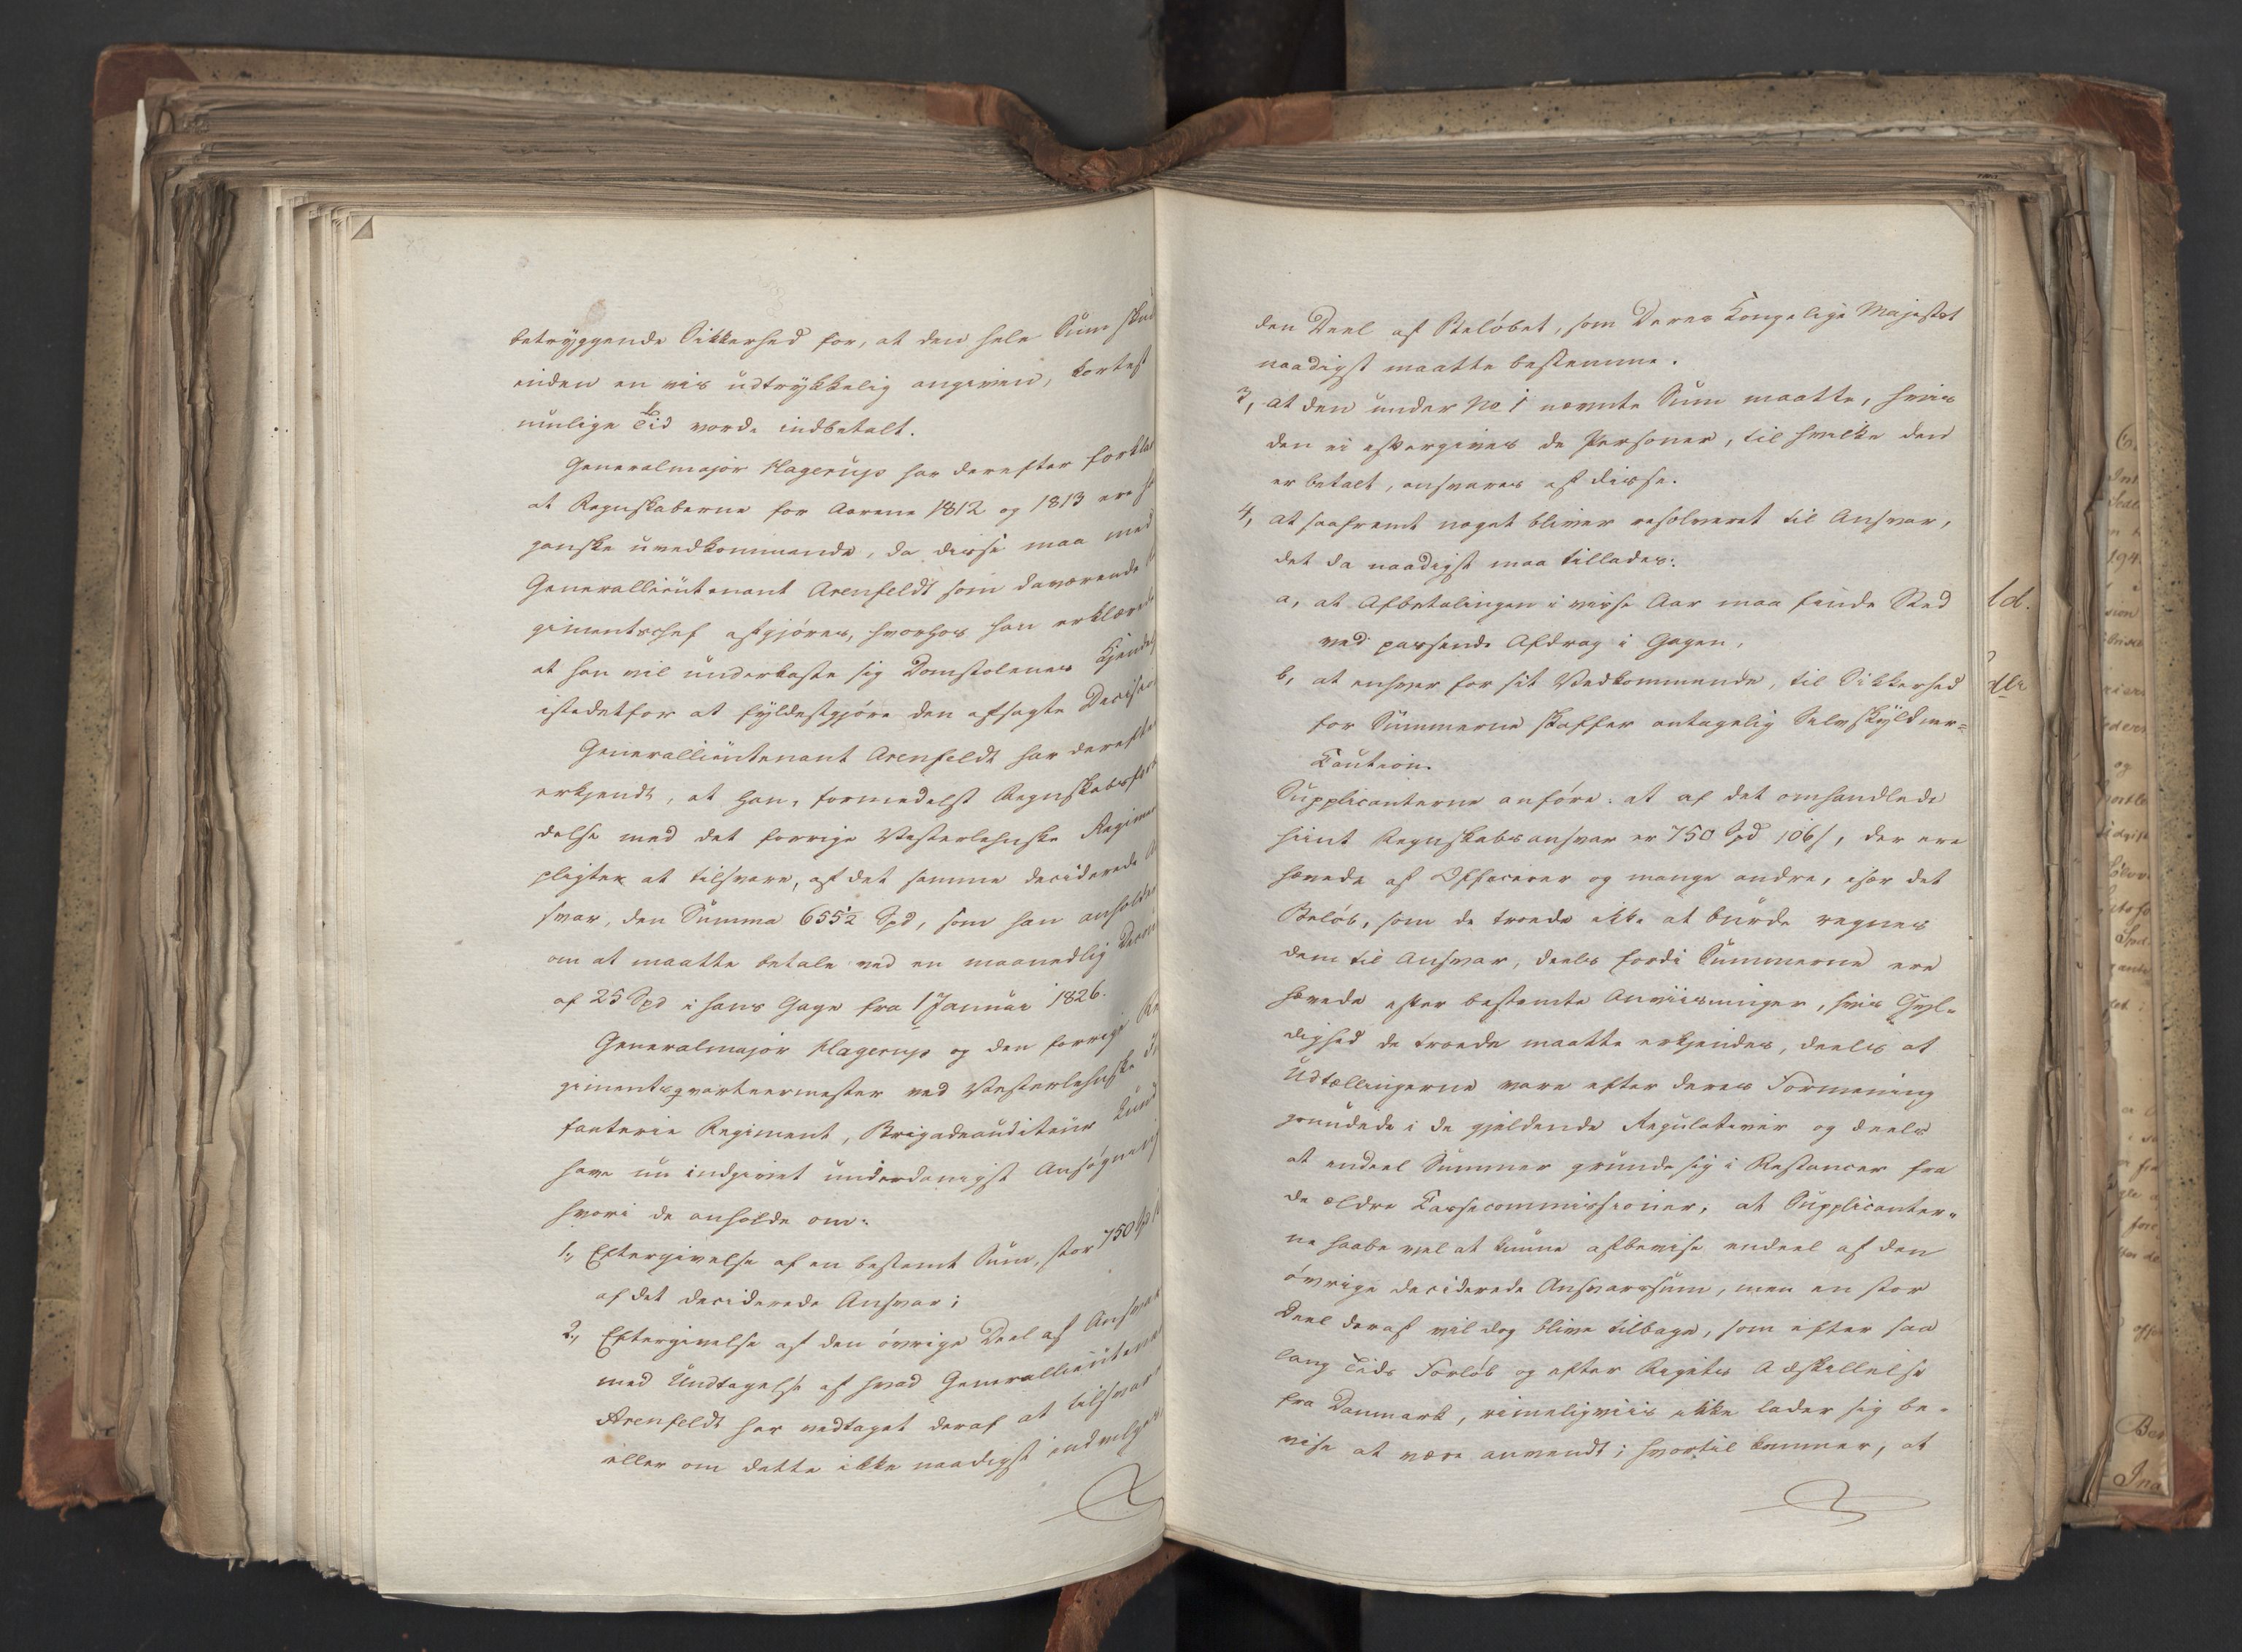 betryggende Sikkerhed for, at den hele Sum skal
inden en vis udtrykkelig angiven, kortest
mulige Tid vorde indbetalt.
Generalmajor Hagerup har derefter forklar
at Regnskaberne for Aarene 1812 og 1813 ere h
ganske uvedkommende, da disse maa med
Generallieutenant Arenfeldt som daværende
gimentschef afgjøres, hvorhos han erklærede
at han vil underkaste sig Domstolenes Kjendel
istedetfor at fyldestgjøre den afsagte Decision
Generallieutenant Arenfeldt har derefter
erkjendt, at han, formedelst Regnskabsforb
delse med det forrige Vesterlehnske Regimen
pligter at tilsvare, af det samme deciderede A
svar, den Summa 655½ Spd, som han anholder
om at maatte betale ved en maanedlig
af 25 Spd i hans Gage fra 1 Januar 1826.
Generalmajor Hagerup og den forrige Re
gimentsqvarteermester ved Vesterlehnske In
fanterie Regiment, Brigadeauditeur Lund
have nu indgivet underdanigst Ansøgning
hvori de anholde om:
1., Eftergivelse af en bestemt Sum, stor 750 Spd
af det deciderede Ansvar;
2., Eftergivelse af den øvrige Deel af Ansvar
med Undtagelse af hvad Generallieutenant
Arenfeldt har vedtaget deraf at tilsvare
eller om dette ikke naadigst indvilges,
den Deel af Beløbet, som Deres Kongelige Majestet
naadigst maatte bestemme.
3, at den under No 1 nævnte Sum maatte, hvis
den ei eftergives de Personer, til hvilke den
er betalt, ansvares af disse.
4, at saafremt noget bliver resolveret til Ansvar,
det da naadigst maa tillades:
a, at Afbetalingen i visse Aar maa finde Sted
ved passende Afdrag i Gagen,
b, at enhver for sit Vedkommende, til Sikkerhed
for Summerne skaffer antagelig Selvskyldner-
Caution.
Supplicanterne anføre: at af det omhandlede
hiint Regnskabsansvar er 750 Spd 106 s, der ere
hævede af Officerer og mange andre, især det
Beløb, som de troede ikke at burde regnes
dem til Ansvar, deels fordi Summerne ere
hævede efter bestemte Anviisninger, hvis Gyl-
dighed de troede maatte erkjendes, deels at
Udtællingerne vare efter deres Formening
grundede i de gjeldende Regulativer og deels
at endeel Summer grunde sig i Restancer fra
de ældre Cassecommissioner, at Supplicanter-
ne haabe vel at kunne afbevise endeel af den
øvrige deciderede Ansvarssum, men en stor
Deel deraf vil dog blive tilbage, som efter saa
lang Tids Forløb og efter Rigets Adskillelse
fra Danmark, rimeligviis ikke lader sig be-
vise at være anvendt; hvortil kommer, at